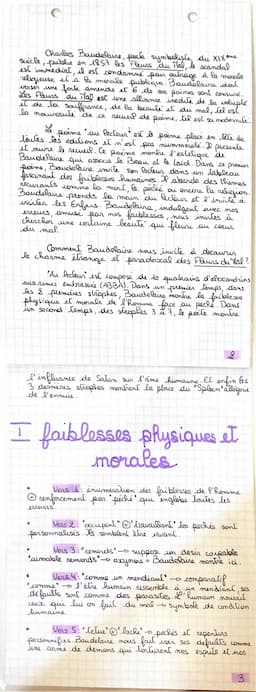 Charles Baudelaire, poète symboliste du XIXème
siècle, publie en 1857 les Fleurs du Mal, le scandal
est immédiat, il est condamné pour outrage à la morale
religieuse et à la morale publique. Baudelaire doit
verser une forte amende et 6 de ses poèmes sont censurés.
Les Fleurs du Mal est une alliance inédite de la volupté
et de la souffrance, de la beauté et du mal, tel est
la nouveauté de ce recueil de poème, tel est sa modernité.
Le poème "au lecteur" est le poème placé en tête de
toutes les éditions et n'est pas numéroté. Il présente
et ouvre le recueil. Ce poème montre l'esthétique de
Baudelaire qui associe le Beau et le laid. Dans ce premier
poème, Baudelaire invite son lecteur dans un tableau
fascinant des faiblesses humaines. Il aborde des thèmes
récurants comme la mort, le péché ou encore la religion.
Baudelaire prends la main du lecteur et l'invite à
visiter les Enfers. Baudelaire, indulgent avec nos
erreurs, amusé par nos faiblesses, nous invite à
chercher une certaine beauté qui fleure au cœur
du mal.
Comment Baudelaire nous invite à découvrir
le charme étrange et paradoxal des Fleurs du Mal ?
"Au lecteur" est composé de 10 quatrains d'alexandrins
aux rimes embrassées (ABBA). Dans un premier temps, dans
les 2 premières strophes, Baudelaire montre la faiblesse
physique et morale de l'Homme face au péché. Dans
un second temps, des strophes 3 à 7, le poète montre
2
l'influence de Satan sur l'âme humaine. Et enfin les
3 dernières strophes montrent la place du "Spleen" allégorie
de l'ennuie.
I faiblesses physiques et
morales
• Vers 1 : énumération des faiblesses de l'Homme
⊕ renforcement par "péché" qui englobe toutes les
erreurs.
• Vers 2 : "occupent" ⊕ "travaillent" les péchés sont
personnalisés. Ils semblent être vivant.
• Vers 3 : "remords" → suppose un desin coupable
"aimable remords" → oxymore = Baudelaire montre ici
• Vers 4 : "comme un mendiant" → comparatif
"comme" → l'être humain ressemble à un mendiant, ses
défauts sont comme des parasites. L'humain nourrit
ceux qui lui on fait du mal → symbole de condition
humaine.
• Vers 5 : "tetue" ⊕ "lache" → péchés et repentirs
personnifiés. Baudelaire nous fait voir ses défauts comme
une armé de démons qui torturent nos esprits et nos
3